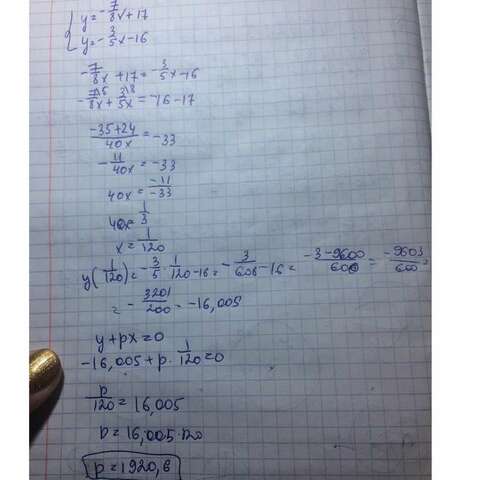 { y = -7/8x + 17
y = -3/5x - 16
-7/8x + 17 = -3/5x - 16
-7\5/8x + 3\8/5x = -16 - 17
(-35 + 24)/40x = -33
-11/40x = -33
40x = -11/-33
40x = 1/3
x = 1/120
y(1/120) = -3/5 · 1/120 - 16 = -3/600 - 16 = (-3 - 9600)/600 = -9603/600 =
= -3201/200 = -16,005
y + px = 0
-16,005 + p · 1/120 = 0
p/120 = 16,005
p = 16,005 · 120
p = 1920,6